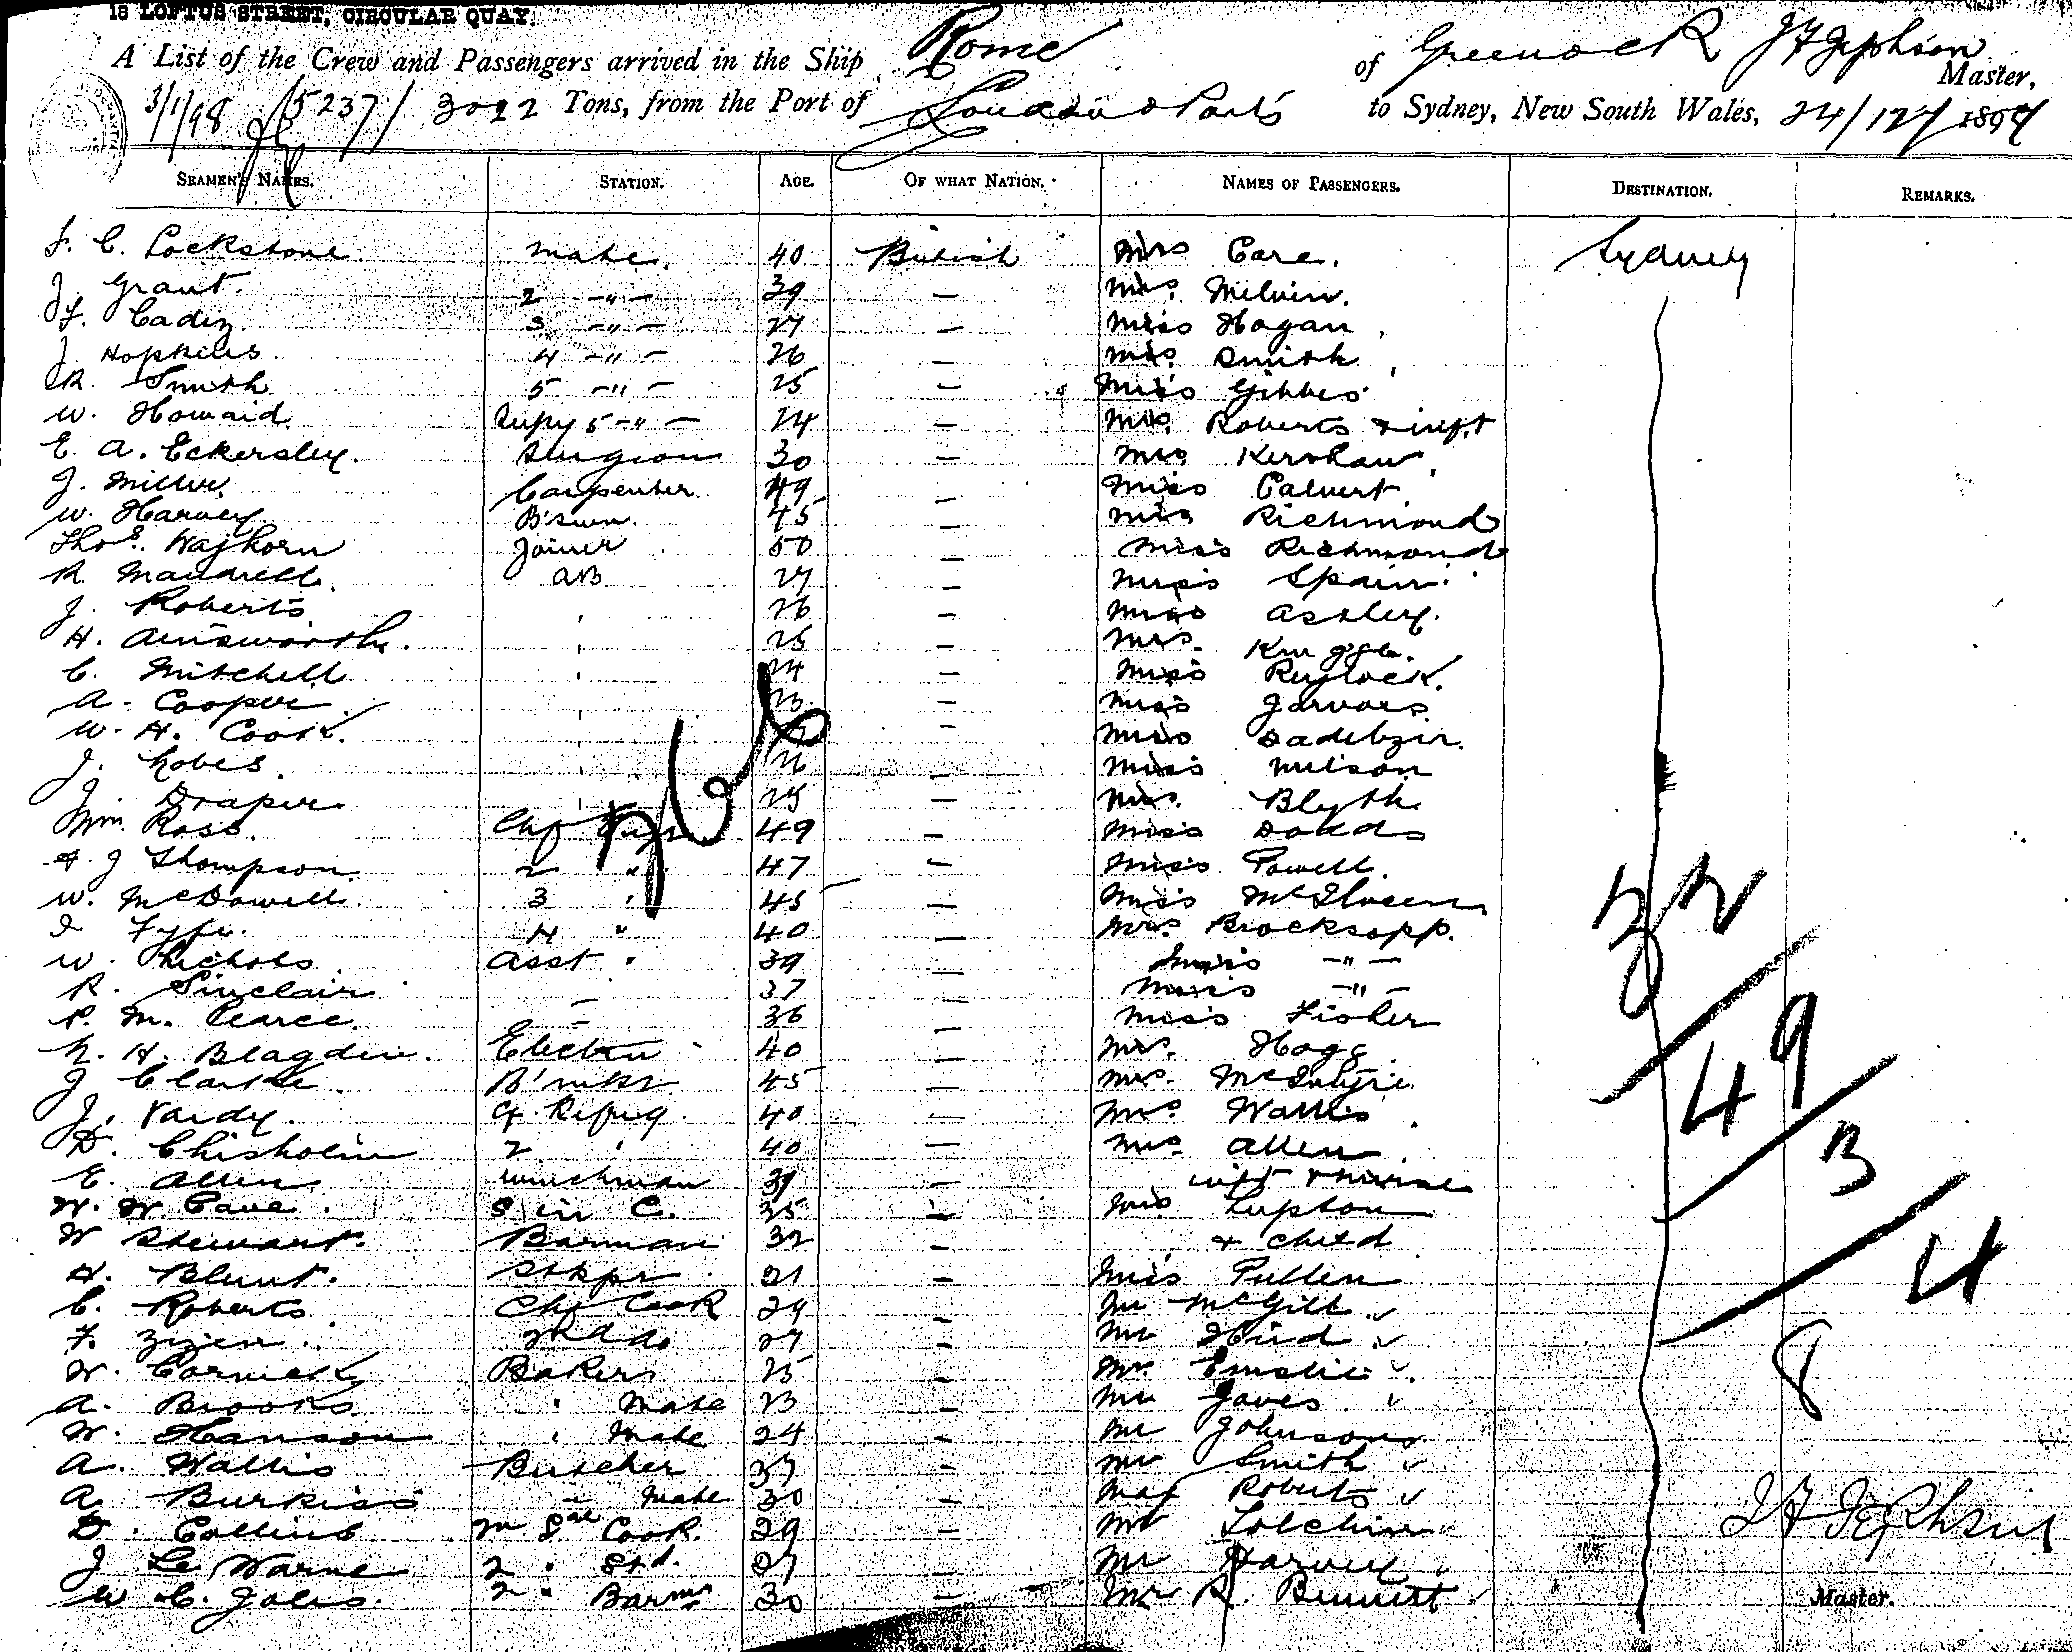 15 LOFTUS STREET, CIRCULAR QUAY.
A List of the Crew and Passengers arrived in the Ship Rome of Greenock J F Jephson Master,
3/1/98 5237/3022 Tons, from the Port of London & Ports to Sydney, New South Wales, 24/12/1897
SEAMEN'S NAMES. STATION. AGE. OF WHAT NATION. NAMES OF PASSENGERS. DESTINATION. REMARKS.
F. C. Lockstone Mate. 40 British Mrs Care. Sydney
J. Grant. 2 -"- 39 — Mrs. Melvin.
F. Cadiz. 3 -"- 27 — Miss Hogan
J. Hopkins. 4 -"- 26 — Smith
R. Smith 5 -"- 25 — Miss Gibbes
W. Howard 5 -"- 24 — Mrs. Roberts & inft
E. A. Eckersley. Surgeon 30 — Kershaw
J. Miller. Carpenter 49 — Miss Calvert
W. Harvey B'swn. 45 — Miss Richmond
Thos. Waghorn Joiner 50 — Miss Richmond
R. Maudrell. AB 27 — Miss Spain.
J. Roberts 26 — Miss Ashley.
H. Ainsworth. 25 — Mrs.
C. Mitchell 24 — Miss Rylock.
A. Cooper. — Miss Jarvois
W. H. Cook. — Miss
J. 26 — Miss
J. Draper 25 — Blyth
Wm. Ross. Chf 49 — Miss Dodds
J Thompson 2 " 47 — Miss Powell.
W. McDowell. 3 " 45 — Miss
Fyfe. 4 " 40 — Mrs. Brocksopp.
W. Nichols Asst " 39 — Miss -"-
R. Sinclair — 37 — Miss -"-
P. M. Pearce. — 36 — Miss Fisher
N. H. Blagden. 40 — Mrs. Hogg
J Clarke 45 — Mrs. McIntyre
J. Vardy. Refrig. 40 — Mrs Wallis
D. Chisholm 2 " 40 — Mrs Allen
E. Allen Winchman 39 — inft & nurse
W. W. Cave. S in C. 35 — Mrs Lupton
W Stewart. Barman 32 — & child
H. Blunt. Stkpr 21 — Miss Pullen
C. Roberts Chf Cook 29 — Mr McGill
F. 2nd do 27 — Mr Hind
W. Baker 25 — Mr Emslie
A. Brooks " Mate 23 — Mr
W. Hanson " Mate 24 — Mr Johnson
A. Wallis Butcher 37 — Mr Smith
A. Burkiss " Mate 30 — Roberts
D. Collins Cook. 29 — Mr
J Le Warne 2 " Std. 27 — Mr Harvey
W C. 2 " Barmn 30 — Mr R. Bennett
32
49
3
4
8
J F Jephson
Master.